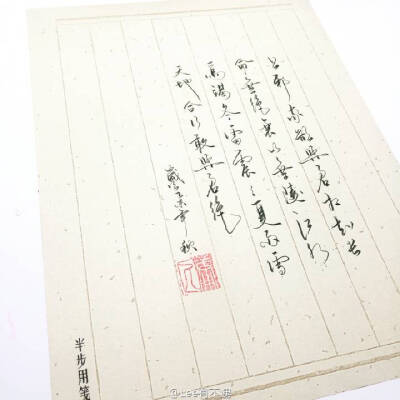 上邪我欲與君相知長
命無絕衰山無陵江水
為竭冬雷震〻夏雨雪
天地合乃敢與君絕
秋
半步用箋